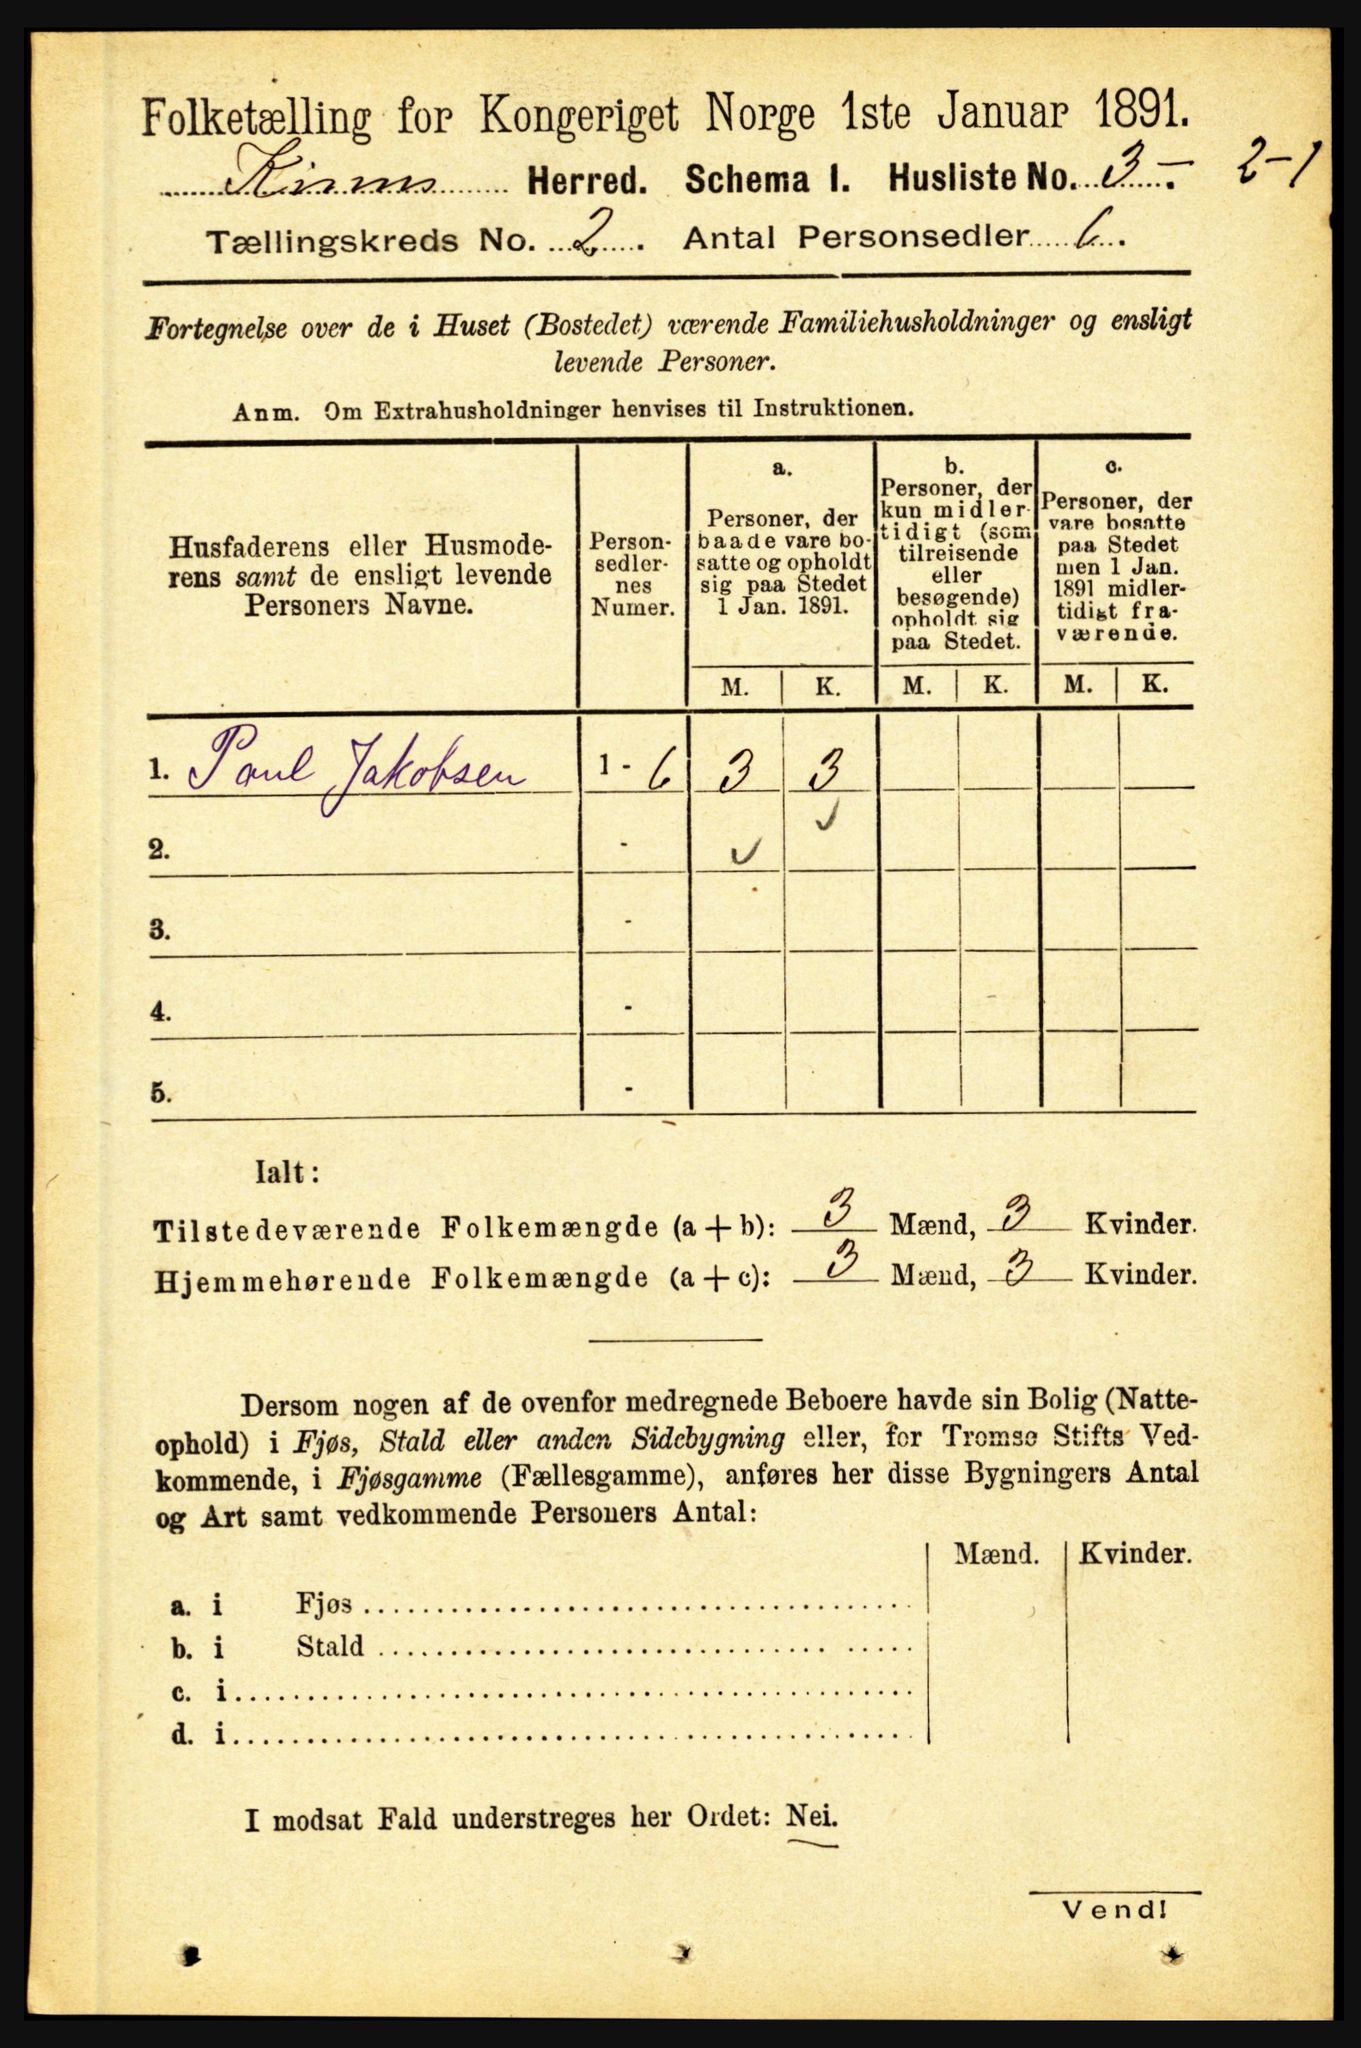 Folketælling for Kongeriget Norge 1ste Januar 1891.
Kinn Herred. Schema I. Husliste No. 3 - 2-1
Tællingskreds No. 2. Antal Personsedler 6.
Fortegnelse over de i Huset (Bostedet) værende Familiehusholdninger og ensligt
levende Personer.
Anm. Om Extrahusholdninger henvises til Instruktionen.
Husfaderens eller Husmode-
rens samt de ensligt levende
Personers Navne.
Person-
sedler-
nes
Numer.
a.
Personer, der
baade vare bo-
satte og opholdt
sig paa Stedet
1 Jan. 1891.
b.
Personer, der
kun midler-
tidigt (som
tilreisende
eller
besøgende)
opholdt sig
paa Stedet.
c.
Personer, der
vare bosatte
paa Stedet
men 1 Jan.
1891 midler-
tidigt fra-
værende.
M. K. M. K. M. K.
1. Paul Jakobsen 1 - 6 3 3
2. -
3. -
4. -
5. -
Ialt:
Tilstedeværende Folkemængde (a+b): 3 Mænd, 3 Kvinder.
Hjemmehørende Folkemængde (a+c): 3 Mænd, 3 Kvinder.
Dersom nogen af de ovenfor medregnede Beboere havde sin Bolig (Natte-
ophold) i Fjøs, Stald eller anden Sidebygning eller, for Tromsø Stifts Ved-
kommende, i Fjøsgamme (Fællesgamme), anføres her disse Bygningers Antal
og Art samt vedkommende Personers Antal:
Mænd. Kvinder.
a. i Fjøs
b. i Stald
c. i
d. i
I modsat Fald understreges her Ordet: Nei.
Vend!